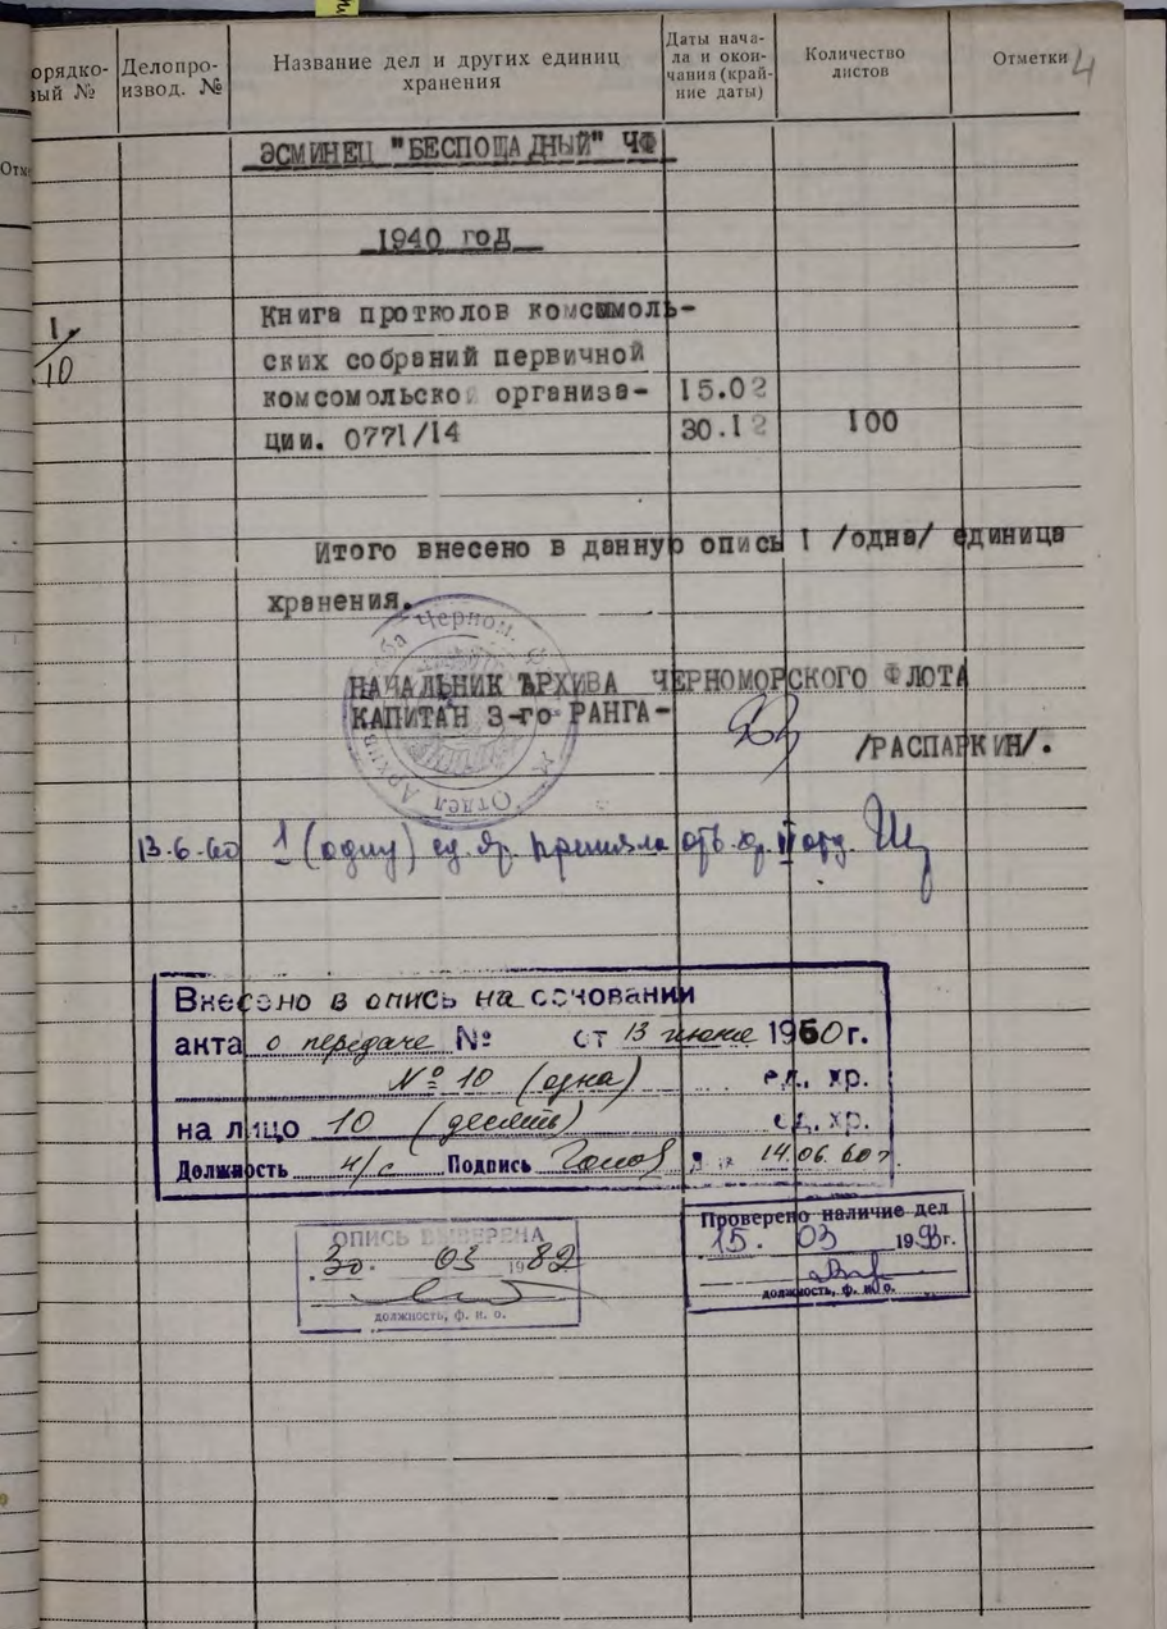 орядко-
вый №
Делопро-
извод. №
Название дел и других единиц
хранения
Даты нача-
ла и окон-
чания (край-
ние даты)
Количество
листов
Отметки
4
Отм
ЭСМИНЕЦ "БЕСПОЩАДНЫЙ" ЧФ
1940 год
1.
10
Книга протколов комсомоль-
ских собраний первичной
комсомольской организа- 15.02
ции. 0771/14 30.12 100
Итого внесено в данную опись 1 /одна/ единица
хранения.
Отдел Архив ба Черном. Ф
НАЧАЛЬНИК АРХИВА ЧЕРНОМОРСКОГО ФЛОТА
КАПИТАН 3-го РАНГА-
/РАСПАРКИН/.
13.6.60 1 (одну) ед. хр. приняла отв. хр. II отд.
Внесено в опись на основании
акта о передаче № от 13 июня 1960 г.
№ 10 (одна) ед. хр.
на лицо 10 (десять) ед. хр.
Должность н/с Подпись 14.06.60 г.
ОПИСЬ ВЫВЕРЕНА
30. 03 1982
должность, ф. и. о.
Проверено наличие дел
15. 03 1993 г.
должность, ф. и. о.